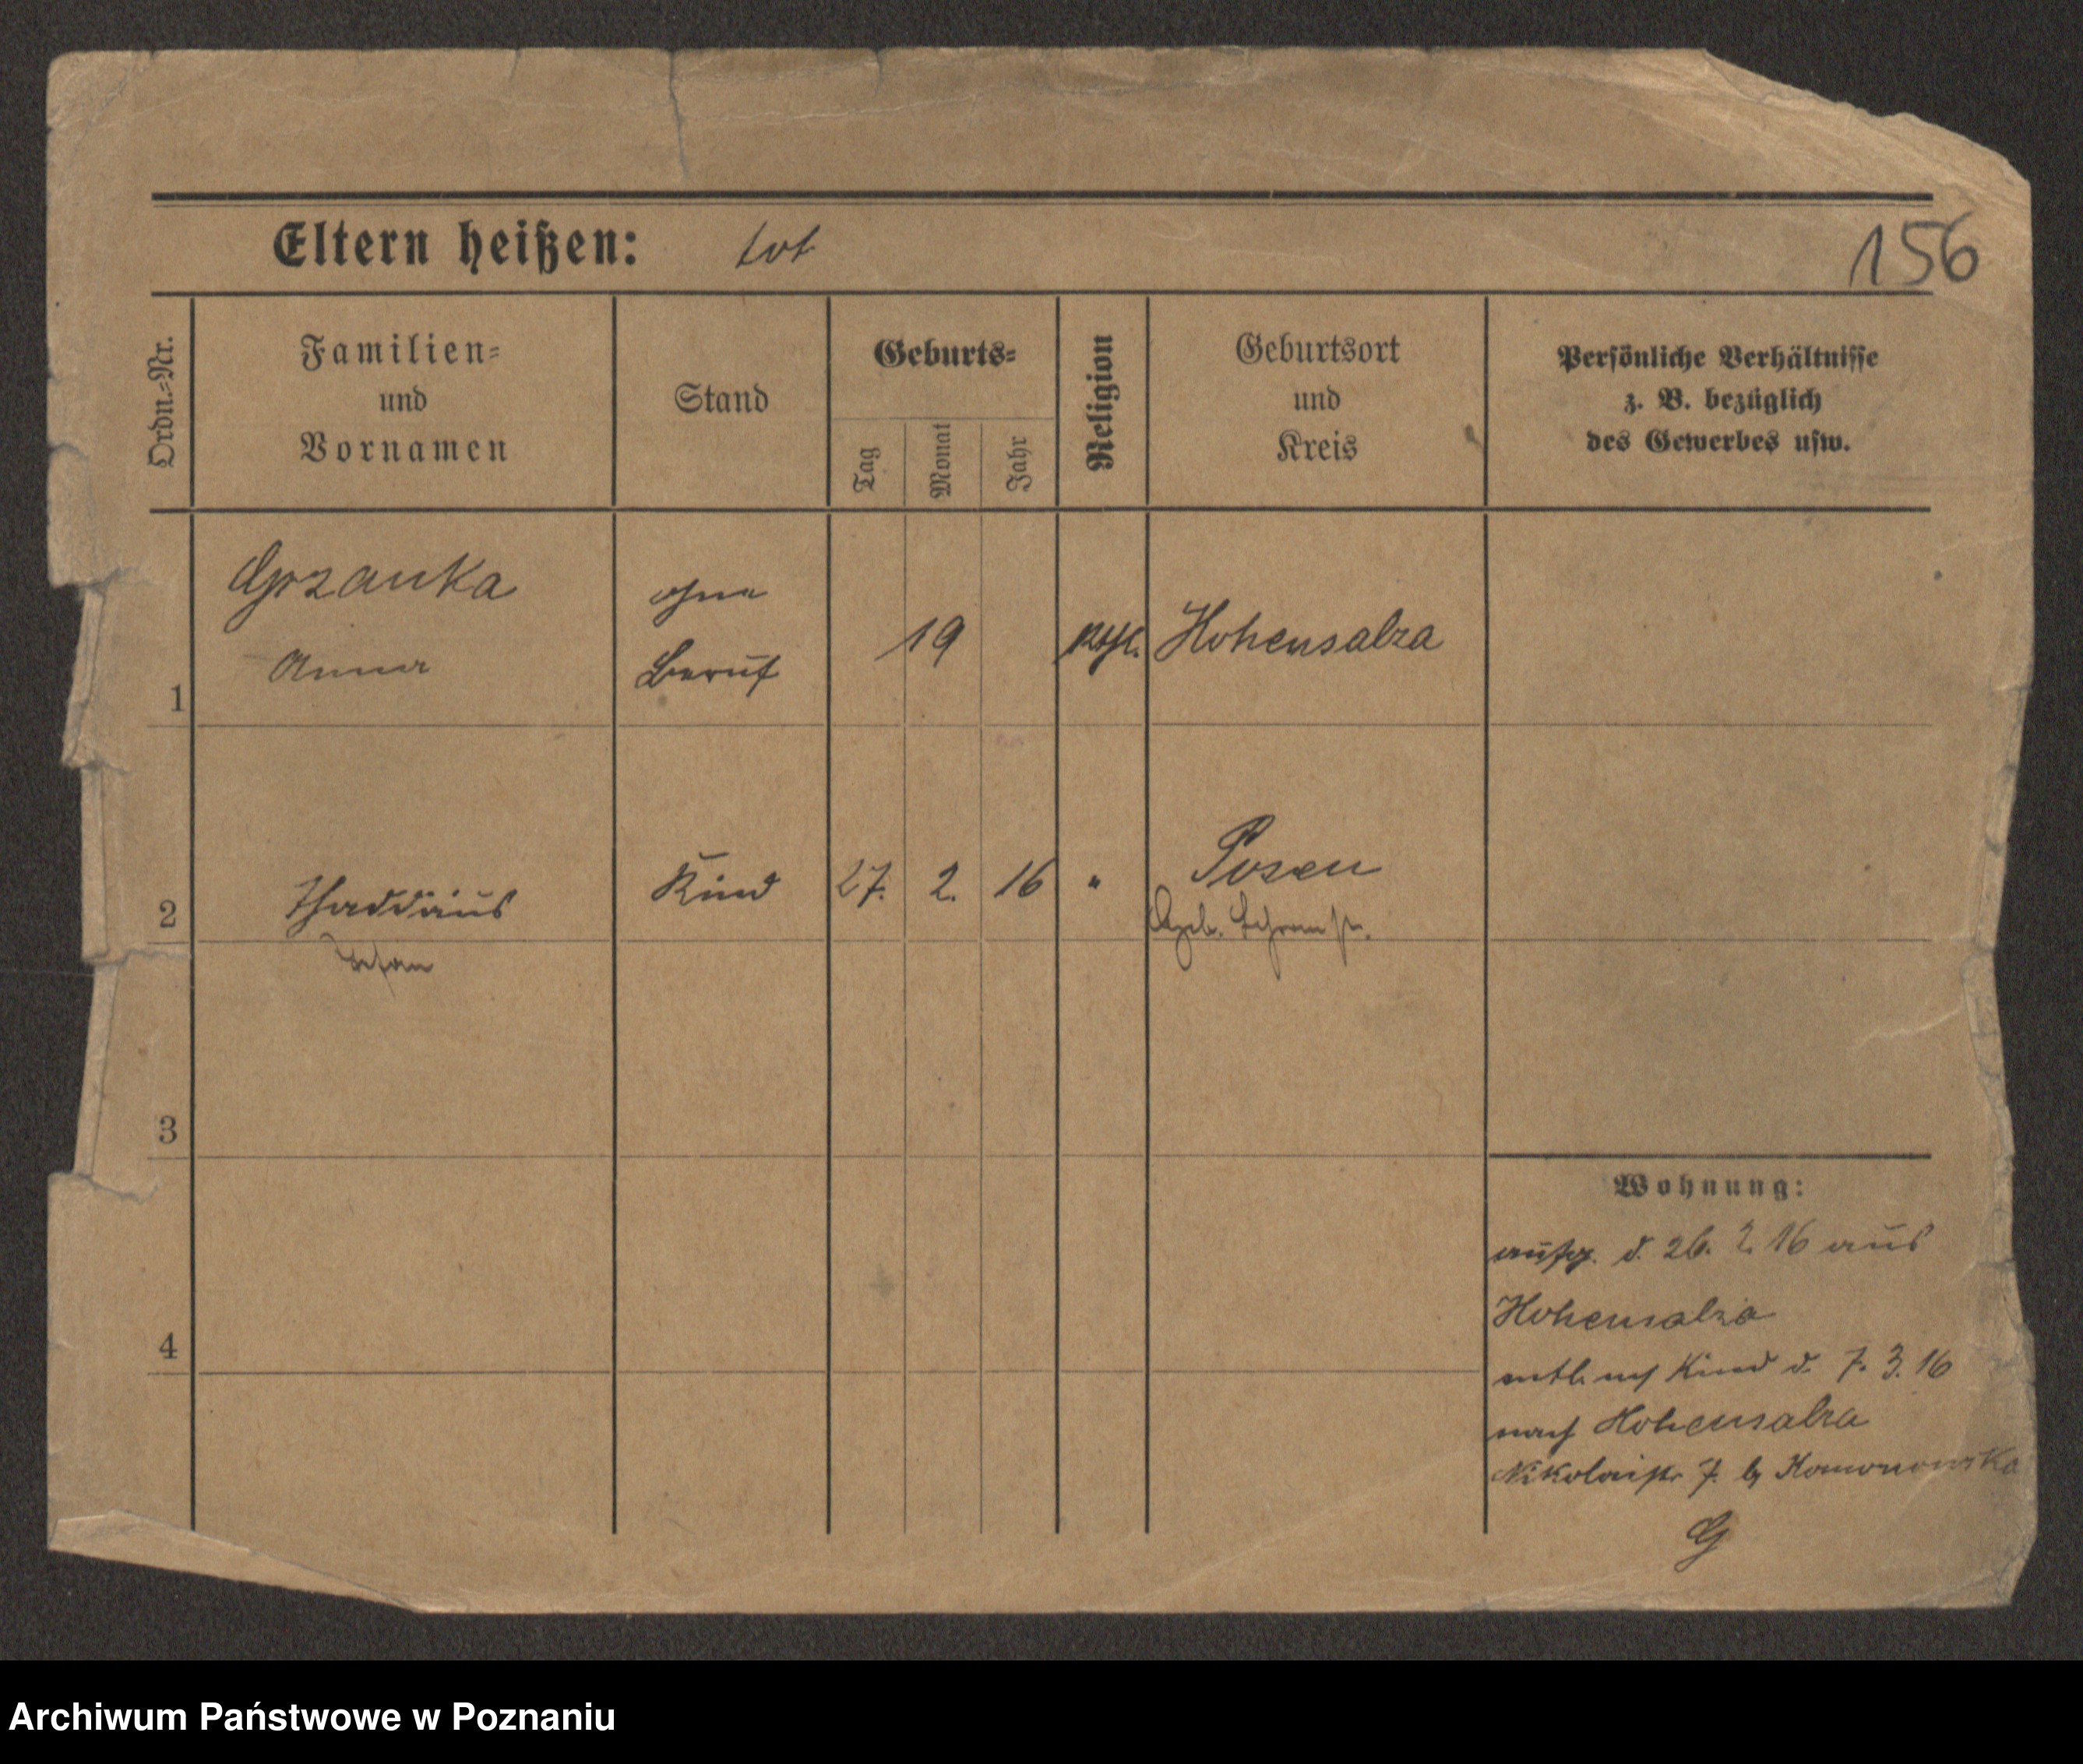 Eltern heißen: tot
156
Ordn.-Nr.
Familien-
und
Vornamen
Stand
Geburts-
Tag
Monat
Jahr
Religion
Geburtsort
und
Kreis
Persönliche Verhältnisse
z. B. bezüglich
des Gewerbes usw.
1
Anna
ohne
Beruf
19
Hohensalza
2
Thaddäus
Stefan
Kind
27. 2. 16
"
Posen
3
4
Wohnung:
d. 26. 2. 16 aus
Hohensalza
Kind d. 7. 3. 16
nach Hohensalza
Nikolaistr 7.
G
Archiwum Państwowe w Poznaniu